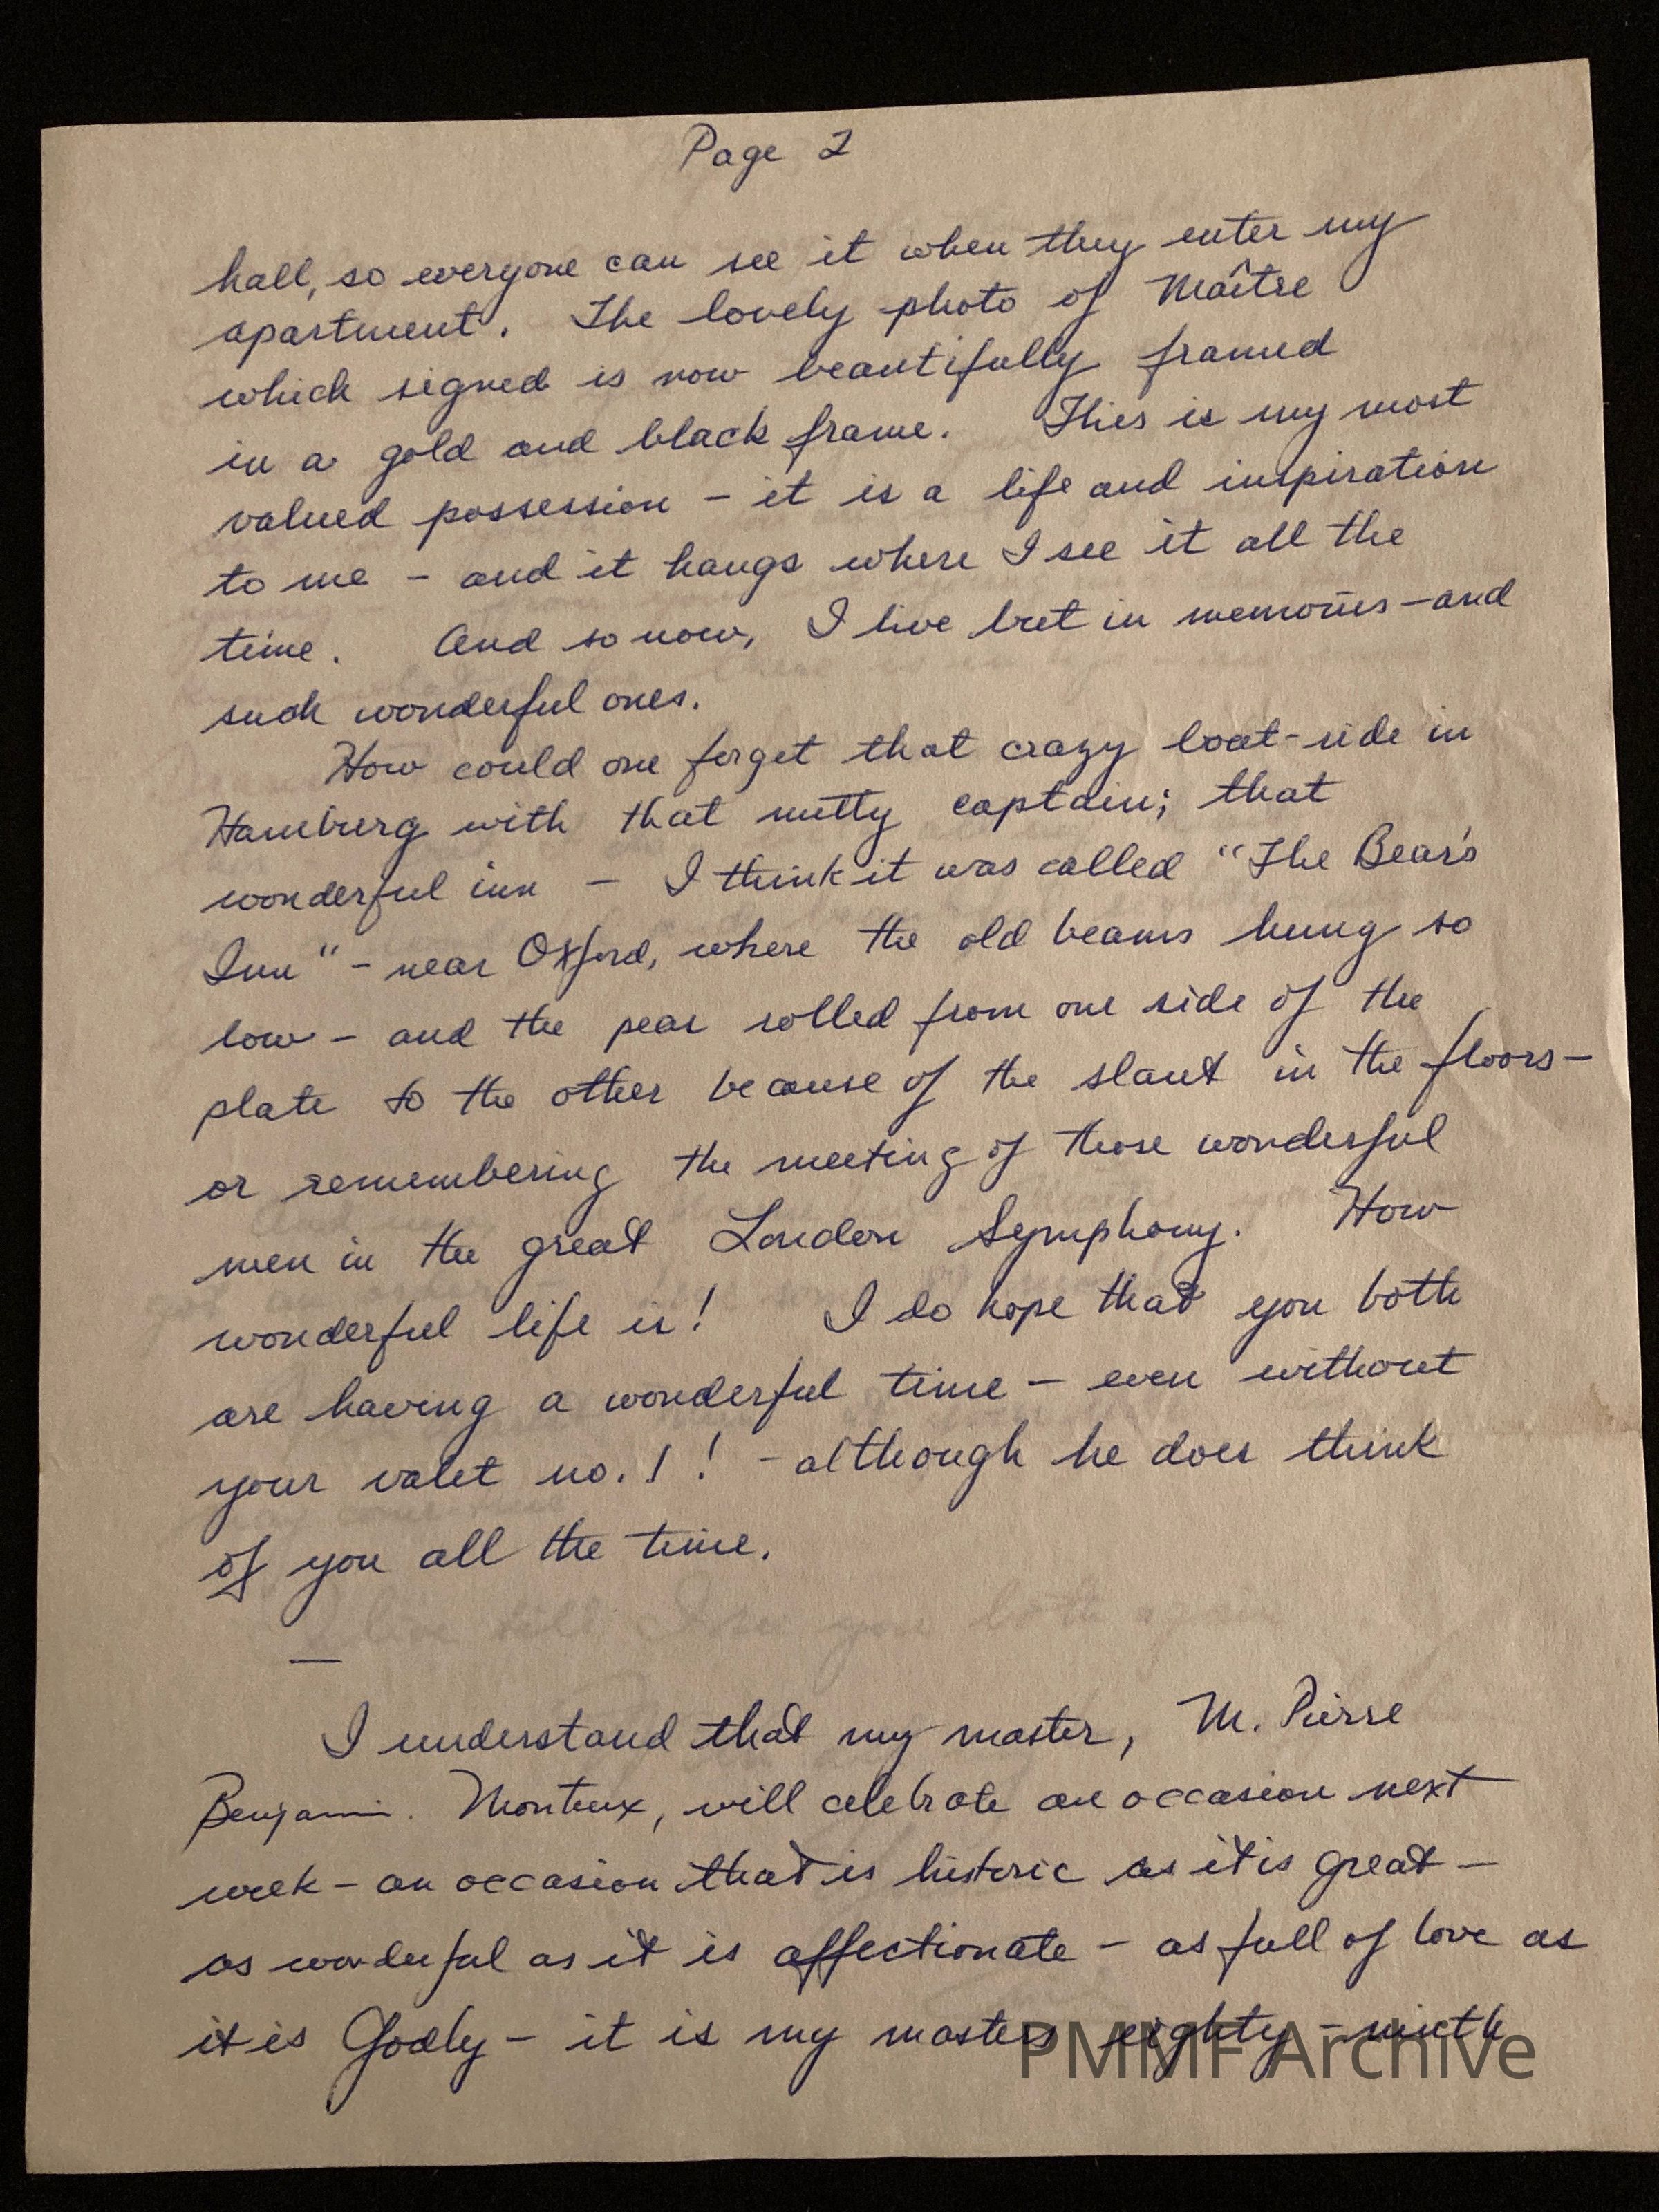 Page 2
hall, so everyone can see it when they enter my
apartment. The lovely photo of Maître
which signed is now beautifully framed
in a gold and black frame. This is my most
valued possession – it is a life and inspiration
to me – and it hangs where I see it all the
time. And so now, I live but in memories – and
such wonderful ones.
How could one forget that crazy boat-ride in
Hamburg with that nutty captain; that
wonderful inn – I think it was called "The Bear's
Inn" – near Oxford, where the old beams hung so
low – and the peas rolled from one side of the
plate to the other because of the slant in the floors –
or remembering the meeting of those wonderful
men in the great London Symphony. How
wonderful life is! I do hope that you both
are having a wonderful time – even without
your valet no. 1! – although he does think
of you all the time.
—
I understand that my master, M. Pierre
Benjamin. Monteux, will celebrate an occasion next
week – an occasion that is historic as it is great –
as wonderful as it is affectionate – as full of love as
it is Godly – it is my masters eighty-ninth
PMMF Archive